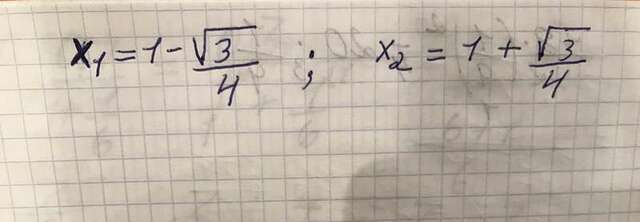 x₁ = 1 - √3/4 ; x₂ = 1 + √3/4